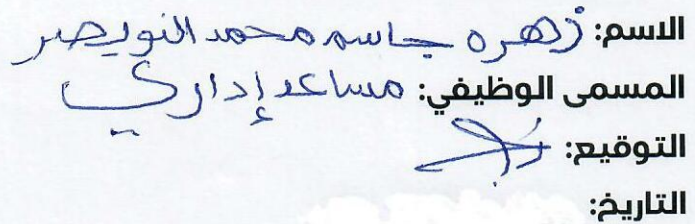 الاسم: زهره جاسم محمد النويصر
المسمى الوظيفي: مساعد إداري
التوقيع:
التاريخ: